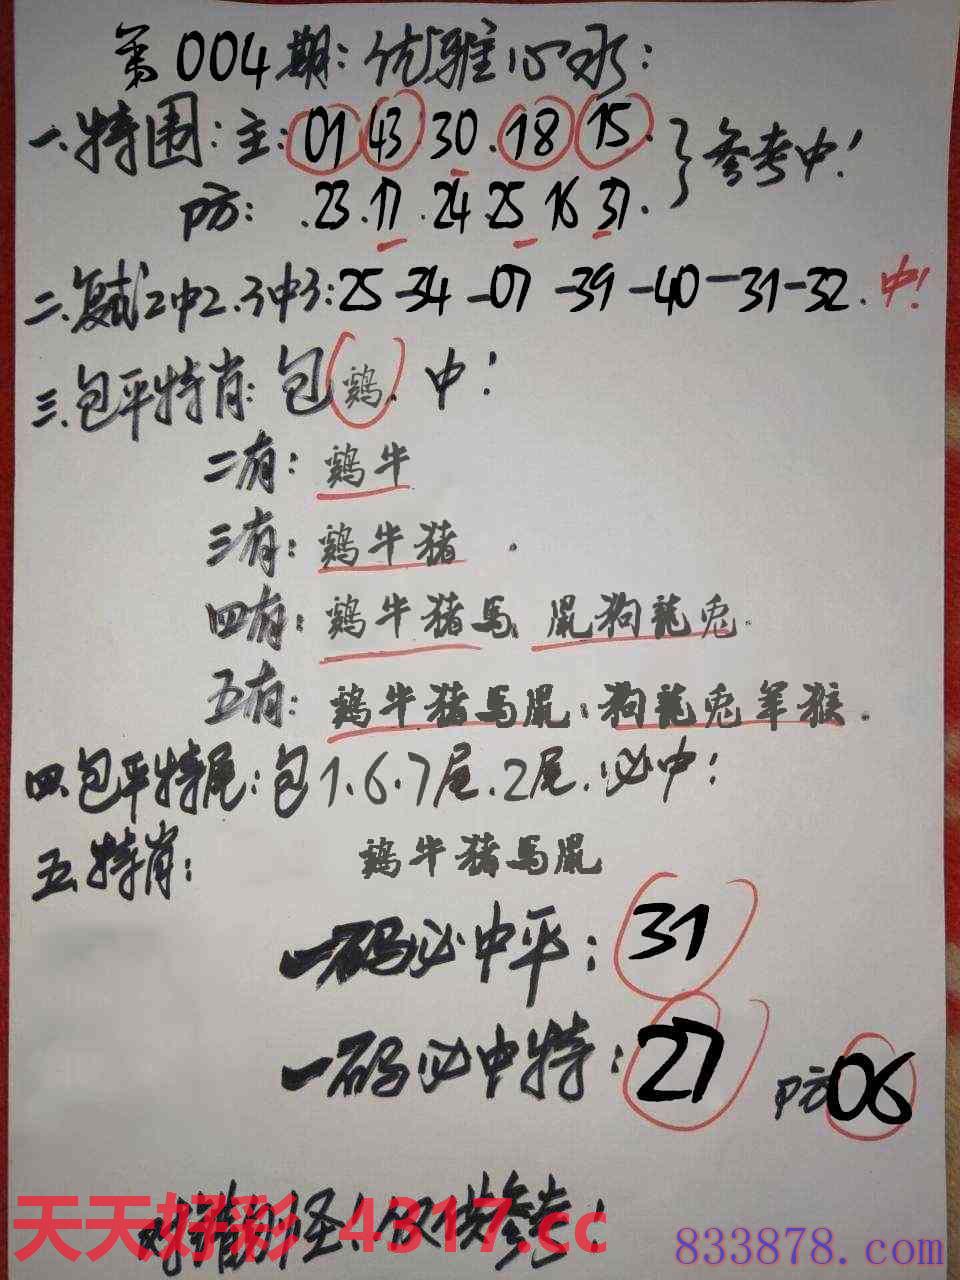 第004期:优雅心水:
一.特围:主:01 43.30.18 15. }参考中!
防: .23.17.24.25 16 37.
二.复式2中2.3中3:25-34-07-39-40-31-32.中!
三.包平特肖:包鷄.中!
二有:鷄牛
三有:鷄牛猪.
四有:鷄牛猪馬.鼠狗龍兎.
五有:鷄牛猪馬鼠.狗龍兎羊猴.
四.包平特尾:包1.6.7尾.2尾.必中!
五.特肖: 鷄牛猪馬鼠
一码必中平:31
一码必中特:27 防06
对错勿怪!仅供参考!
天天好彩 4317.cc
833878.com